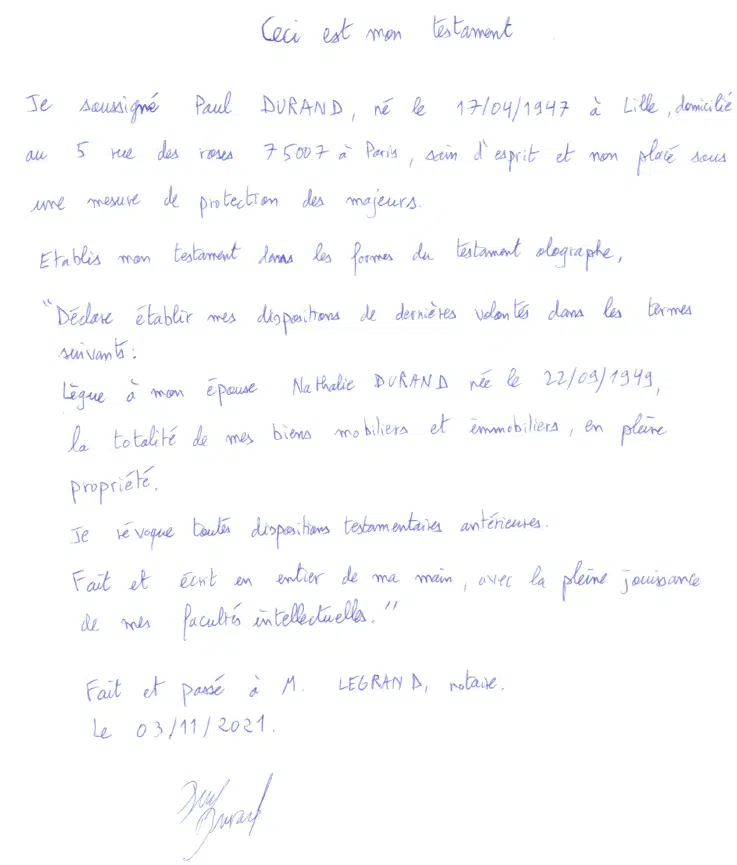 Ceci est mon testament
Je soussigné Paul DURAND, né le 17/04/1947 à Lille, domicilié
au 5 rue des roses 75007 à Paris, sain d'esprit et non placé sous
une mesure de protection des majeurs.
Etablis mon testament dans les formes du testament olographe,
"Déclare établir mes dispositions de dernières volontés dans les termes
suivants :
Lègue à mon épouse Nathalie DURAND née le 22/09/1949,
la totalité de mes biens mobiliers et immobiliers, en pleine
propriété.
Je révoque toutes dispositions testamentaires antérieures.
Fait et écrit en entier de ma main, avec la pleine jouissance
de mes facultés intellectuelles."
Fait et passé à M. LEGRAND, notaire.
Le 03/11/2021.
Paul
Durand